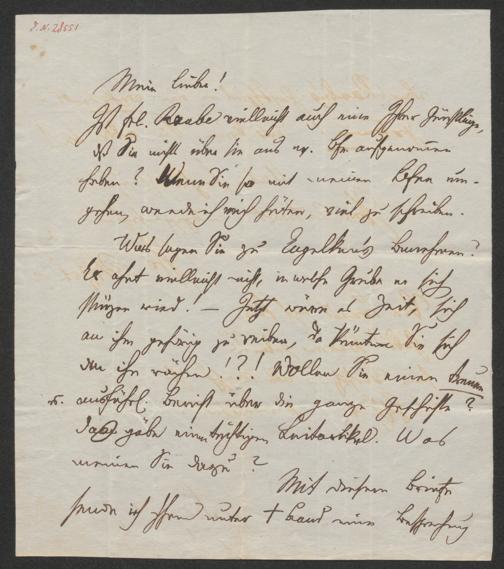 J. N. 28551
Mein Lieber!
Ist Frl. Raabe vielleicht auch eine Ihrer Günstlinge,
daß Sie nichts über sie aus m. aufgenommen
haben? Wenn Sie so mit meinen um-
gehen, werde ich mich hüten, viel zu schreiben.
Was sagen Sie zu Engelken's Benehmen?
Er ahnt vielleicht nicht, in welche Grube er sich
stürzen wird! — Jetzt wäre es Zeit, sich
an ihm gehörig zu reiben, da könnten Sie sich
an ihm rächen!?! Wollen Sie einen
u. ausführl. Bericht über die ganze Geschichte?
Das gäbe einen tüchtigen Leitartikel. Was
meinen Sie dazu?
Mit diesem Briefe
sende ich Ihnen unter + band eine Besprechung